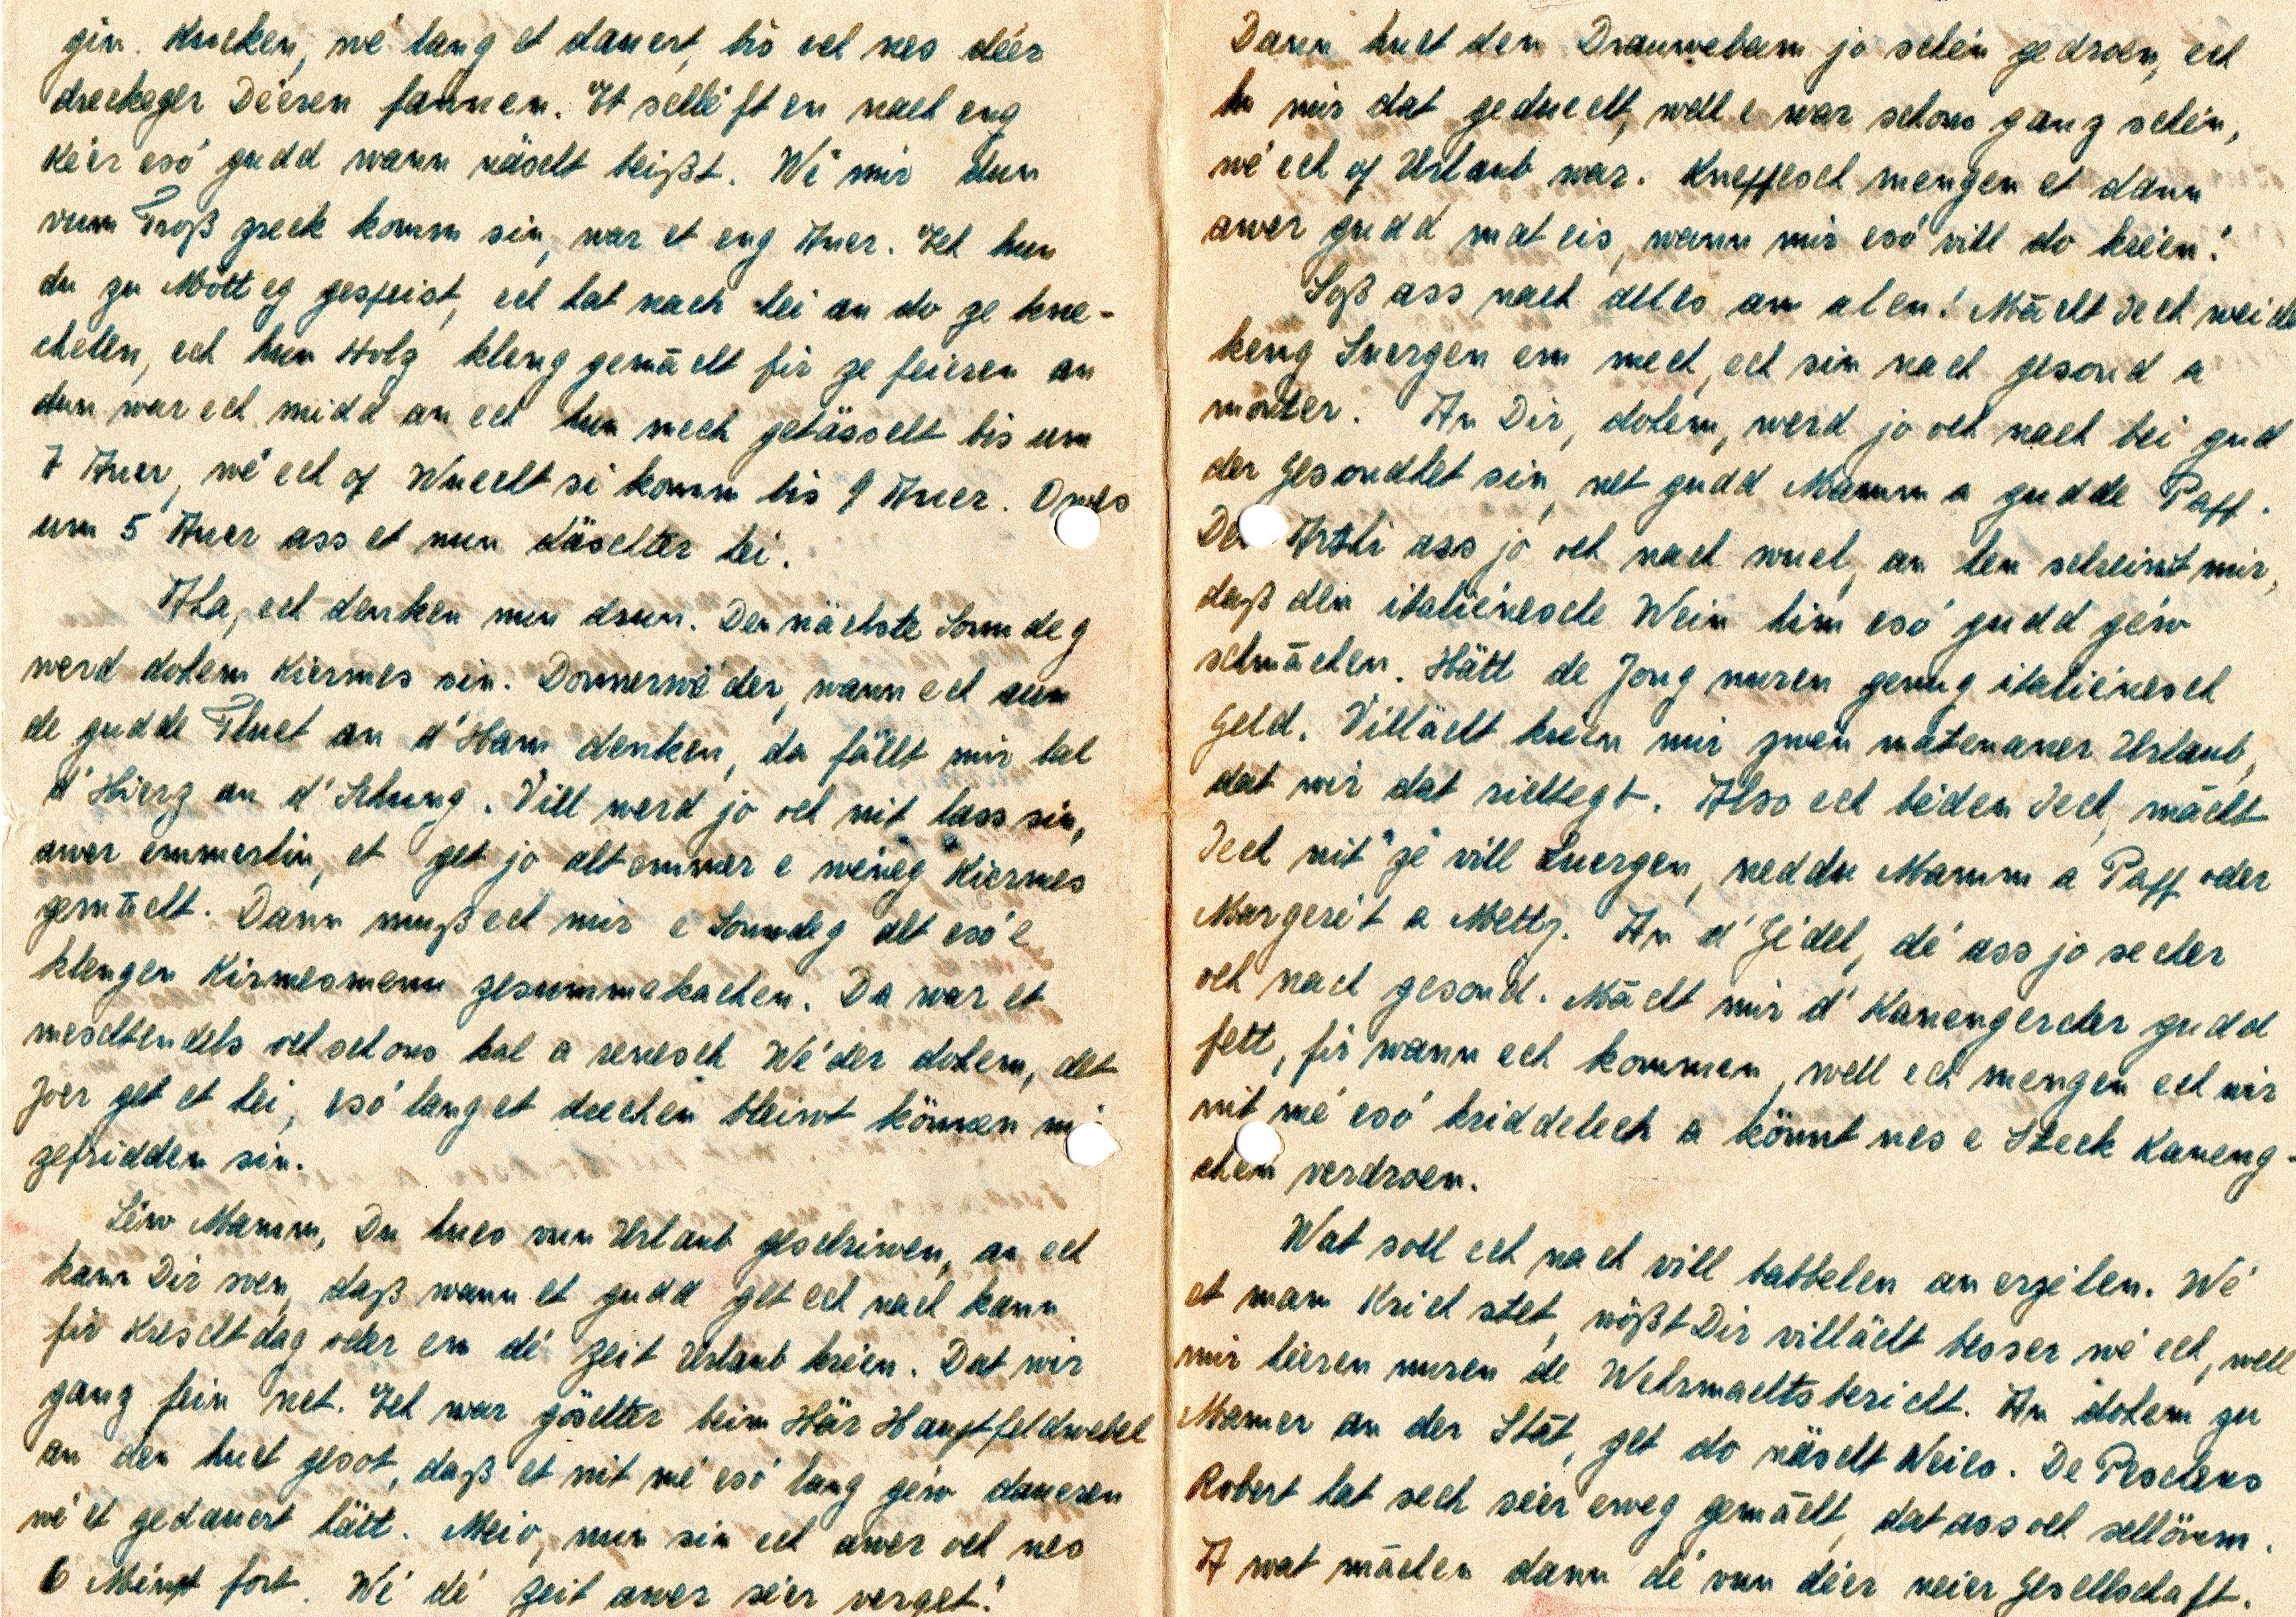 gin. Kucken, wé lang et dauert, bis och nes déér
dreckeger Déeren fannen. Et schléift en nach eng
Kéer esó gudd wann näscht beißt. Wé mir dun
vum Troß zreck komm sin, war et eng Auer. Ech hun
du zu Mötteg gespeist, ech hat nach hei an do ze kne-
chelen, ech hun Holz kleng gemächt fir ze feieren an
dun war ech midd an ech hun mech getässelt bis um
7 Auer, wé ech of Wuecht si komm bis 9 Auer. Owes
um 5 Auer ass et nun däschter hei.
Aha, ech denken nun drun. Den nächste Sonndeg
werd dohem Kiermes sin. Donnerwéder, wann ech un
de gudde Fluet an d'Ham denken, da fällt mir bal
d'Hierz an d'Schung. Vill werd jo och nit lass sin,
awer emmerhin, et get jo alt emmer e wéineg Kiermes
gemächt. Dann muß ech mir e Sonndeg alt esó e
klengen Kirmesmenu zesummekachen. Da war et
meschtendels och schons kal a reenesch Wéder dohem, det
Joer get et hei, esó lang et dréchen bleiwt können mi
zefridden sin.
Léiw Mamm, Du hues vun Urlaub geschriwen, an ech
kann Dir soen, daß wann et gudd get ech nach kann
fir Kreschtdag oder en dé Zeit Urlaub kréien. Dat wir
ganz fein net. Ech war göschter beim Här Hauptfeldwebel
an den huet gesot, daß et nit mé esó lang géiw daueren
wé et gedauert hätt. Meio, nun sin ech awer och nes
6 Mént fort. Wé dé Zeit awer séier verget!
Dann huet den Drauwebam jo schéin gedroen, ech
hu mir dat geduecht, well e war schons ganz schéin,
wé ech of Urlaub war. Kneffesch mengen et dann
awer gudd mat eis, wann mir esó vill do kréien!
Soß ass nach alles am alen! Mächt Iech weider
keng Suergen em mech, ech sin nach gesond a
monter. An Dir, dohem, werd jo och nach bei gud
der Gesondhet sin, net gudd Mamm a gudde Papp.
Den Arthi ass jo och nach wuel, an hen scheint mir,
daß den italiénesche Wein him esó gudd géiw
schmächen. Hätt de Jong nuren genug italiénesch
Geld. Villächt kréien mir zwéin matenaner Urlaub,
dat wir dat richtegt. Also ech bieden Iech, mächt
Iech nit ze vill Suergen, weddu Mamm a Papp oder
Margerét a Mettz. An d'Jédel, dé ass jo secher
och nach gesond. Mächt mir d'Kanengercher gudd
fett, fir wann ech kommen, well ech mengen ech wir
nit mé esó kriddelech a könnt nes e Steck Kaneng-
chen verdroen.
Wat soll ech nach vill babbelen an erzielen. Wé
et mam Krich stet, wößt Dir villächt besser wé ech, well
mir héieren nuren de Wehrmachtsbericht. An dohem zu
Mamer an der Stat, get do näscht Neies. De Peschens
Robert hat sech séier eweg gemächt, dat ass och schlömm.
A wat mächen dann dé vun déer neier Gesellschaft.